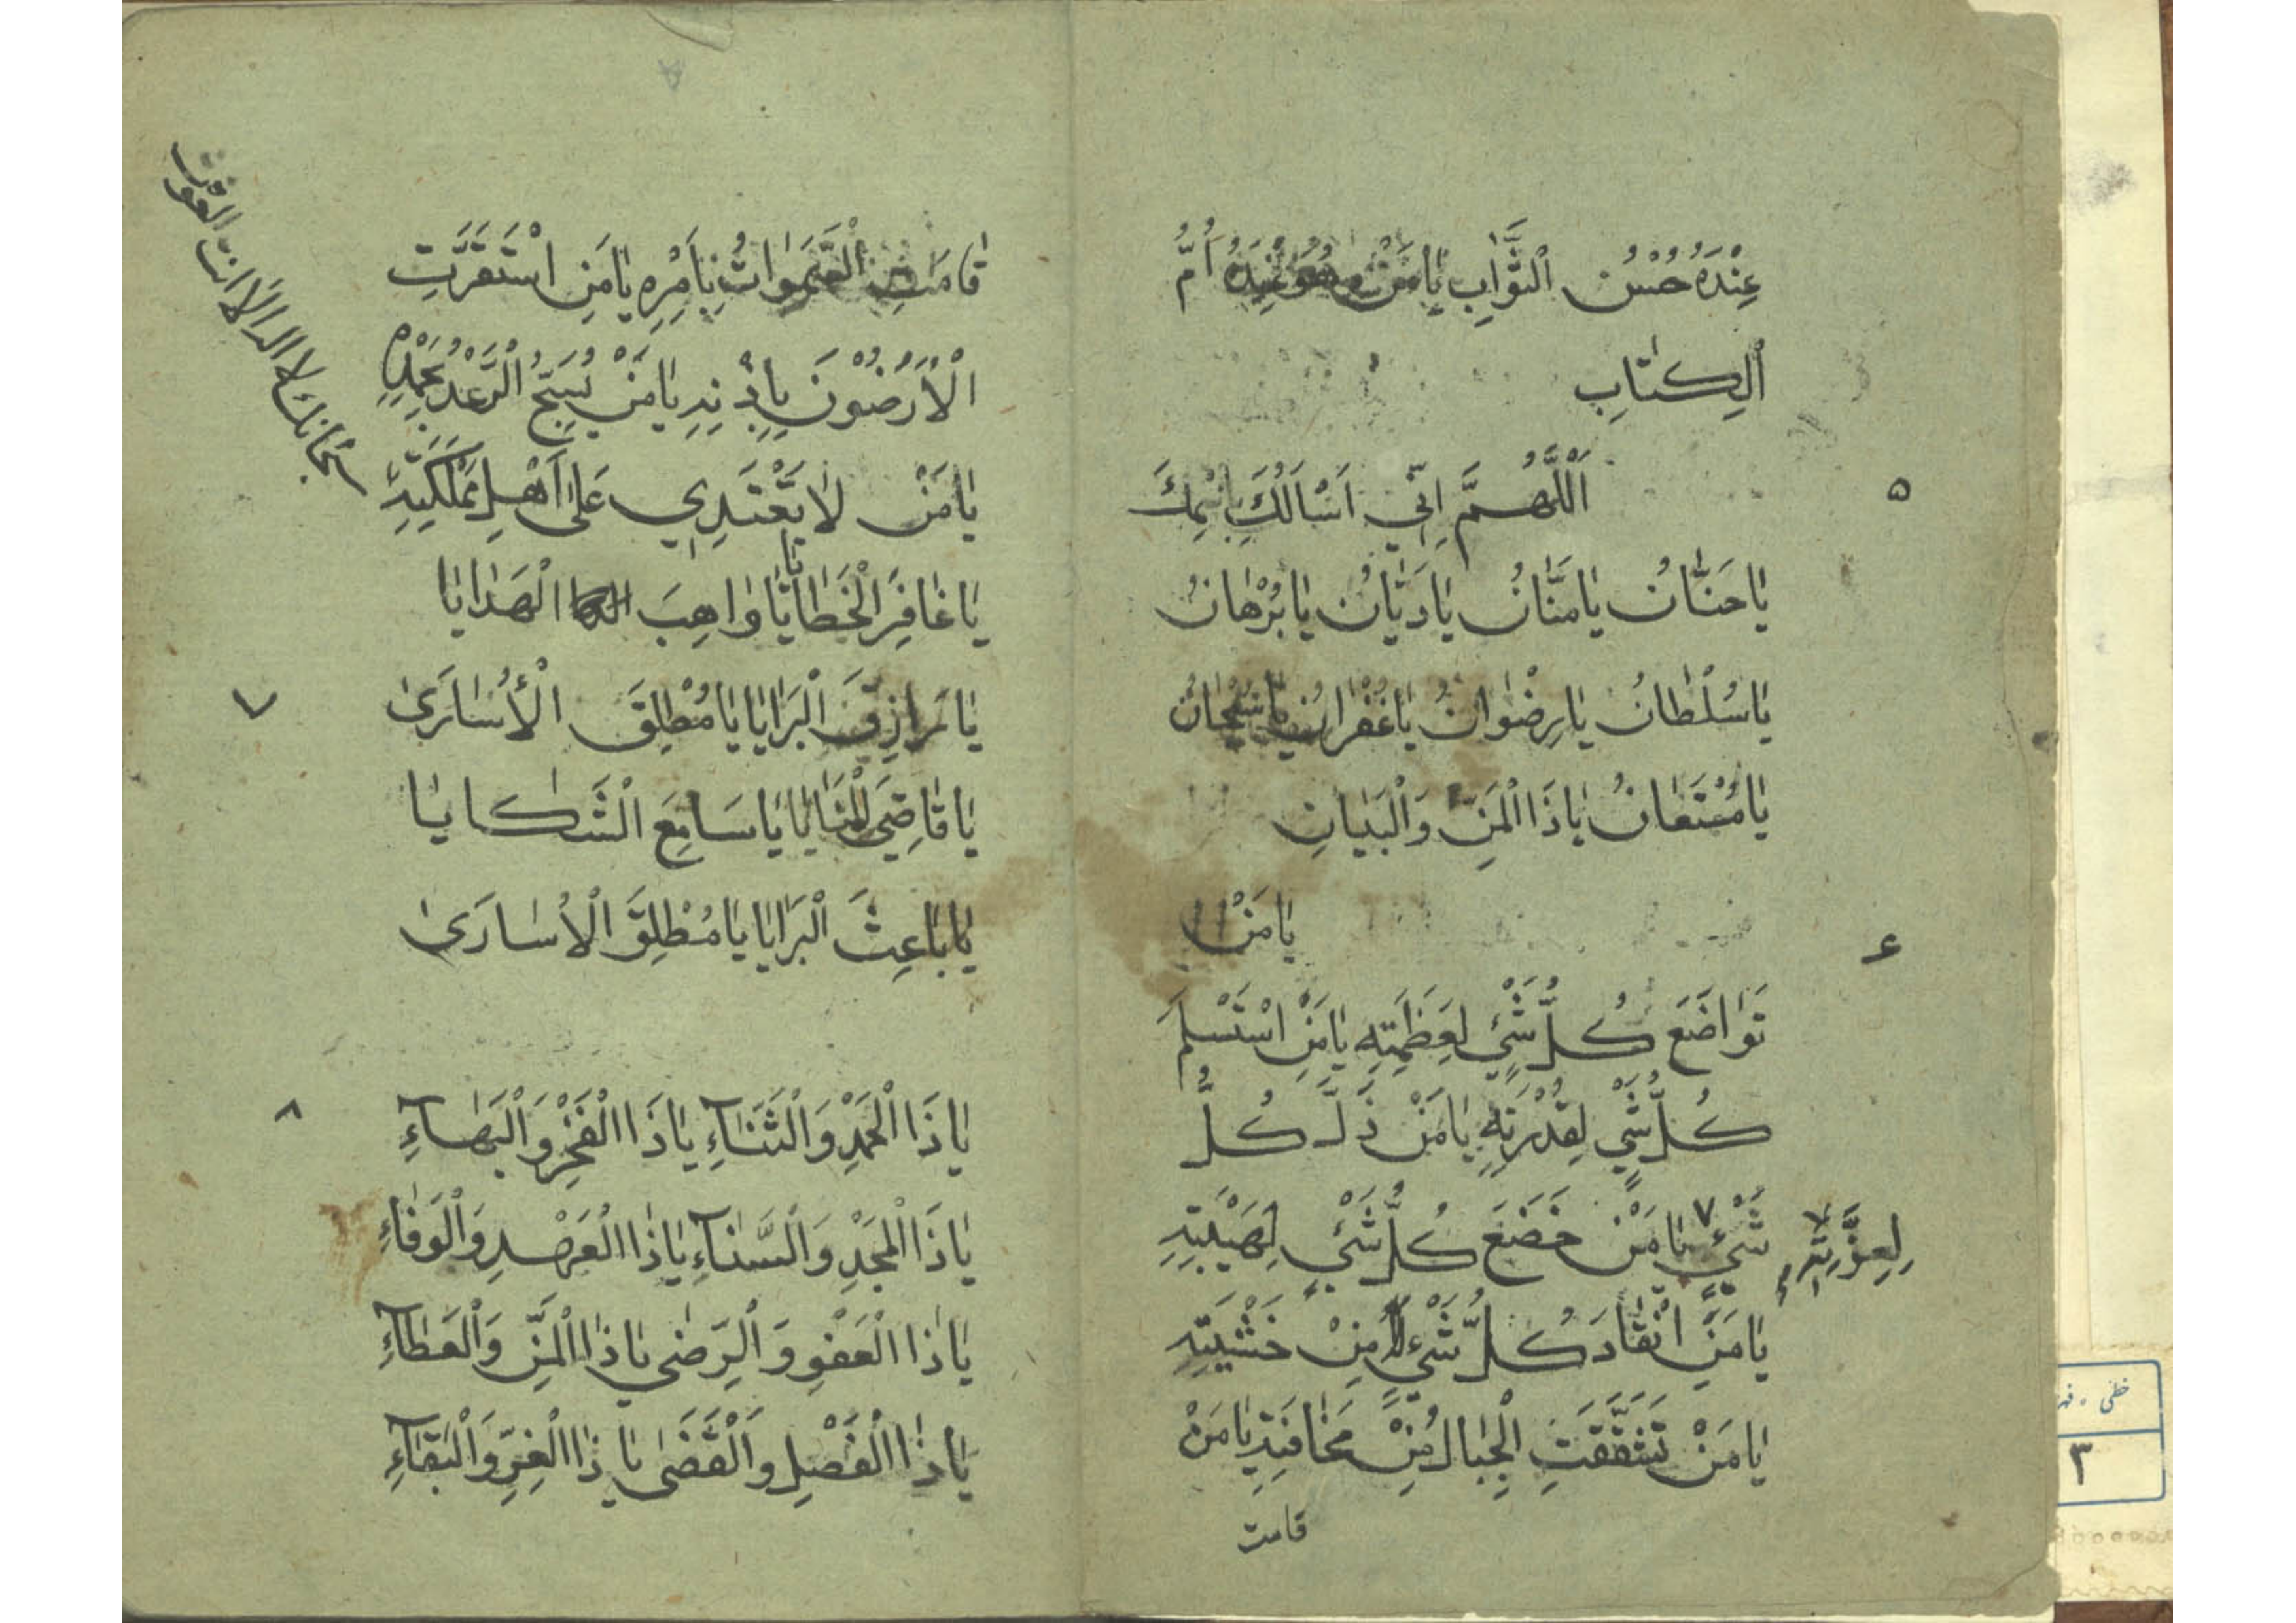 عِنْدَهُ حُسْنُ الثَّوَابِ يَا مَنْ هُوَ عِنْدَهُ اُمُّ
الْكِتَابِ
۵
اَللّٰهُمَّ اِنّي اَسْاَلُكَ بِاسْمِكَ
يَا حَنَّانُ يَا مَنَّانُ يَا دَيَّانُ يَا بُرْهَانُ
يَا سُلْطَانُ يَا رِضْوَانُ يَا غُفْرَانُ يَا سُبْحَانُ
يَا مُسْتَعَانُ يَا ذَا الْمَنِّ وَالْبَيَانِ
۶
يَا مَنْ
تَوَاضَعَ كُلُّ شَيْءٍ لِعَظَمَتِهِ يَا مَنِ اسْتَسْلَمَ
كُلُّ شَيْءٍ لِقُدْرَتِهِ يَا مَنْ ذَلَّ كُلُّ
لِعِزَّتِهِ
شَيْءٍ ٧ يَا مَنْ خَضَعَ كُلُّ شَيْءٍ لِهَيْبَتِهِ
يَا مَنِ انْقَادَ كُلُّ شَيْءٍ مِنْ خَشْيَتِهِ
يَا مَنْ تَشَقَّقَتِ الْجِبَالُ مِنْ مَخَافَتِهِ يَا مَنْ
قامت
قَامَتِ السَّمَوَاتُ بِاَمْرِهِ يَا مَنِ اسْتَقَرَّتِ
الْاَرَضُوْنَ بِاِذْنِهِ يَا مَنْ يُسَبِّحُ الرَّعْدُ بِحَمْدِهِ
يَا مَنْ لَا يَعْتَدِي عَلٰى اَهْلِ مَمْلَكَتِهِ
سبحانك لا اله الا انت الغوث
٧
يَا غَافِرَ الْخَطَايَا يَا وَاهِبَ الْهَدَايَا
يَا رَازِقَ الْبَرَايَا يَا مُطْلِقَ الْأُسَارَىٰ
يَا قَاضِيَ الْمَنَايَا يَا سَامِعَ الشَّكَايَا
يَا بَاعِثَ الْبَرَايَا يَا مُطْلِقَ الْاُسَارَىٰ
٨
يَا ذَا الْحَمْدِ وَالثَّنَآءِ يَا ذَا الْفَخْرِ وَالْبَهَآءِ
يَا ذَا الْمَجْدِ وَالسَّنَآءِ يَا ذَا الْعَهْدِ وَالْوَفَاءِ
يَا ذَا الْعَفْوِ وَالرِّضٰى يَا ذَا الْمَنِّ وَالْعَطَآءِ
يَا ذَا الْفَصْلِ وَالْقَضٰى يَا ذَا الْعِزِّ وَالْبَقَآءِ
خطی
۳